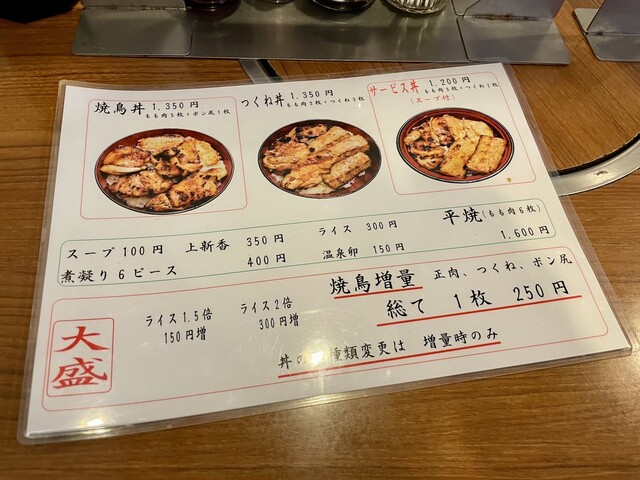 焼鳥丼 1,350円
もも肉5枚・ボン尻1枚
つくね丼 1,350円
もも肉3枚・つくね3枚
サービス丼 1,200円
(スープ付) もも肉3枚・つくね2枚
スープ100円 上新香 350円 ライス 300円 平焼(もも肉6枚)
煮凝り6ピース 400円 温泉卵 150円 1,600円
大盛
ライス1.5倍
150円増
ライス2倍
300円増
焼鳥増量 正肉、つくね、ボン尻
総て 1枚 250円
丼の 種類変更は 増量時のみ